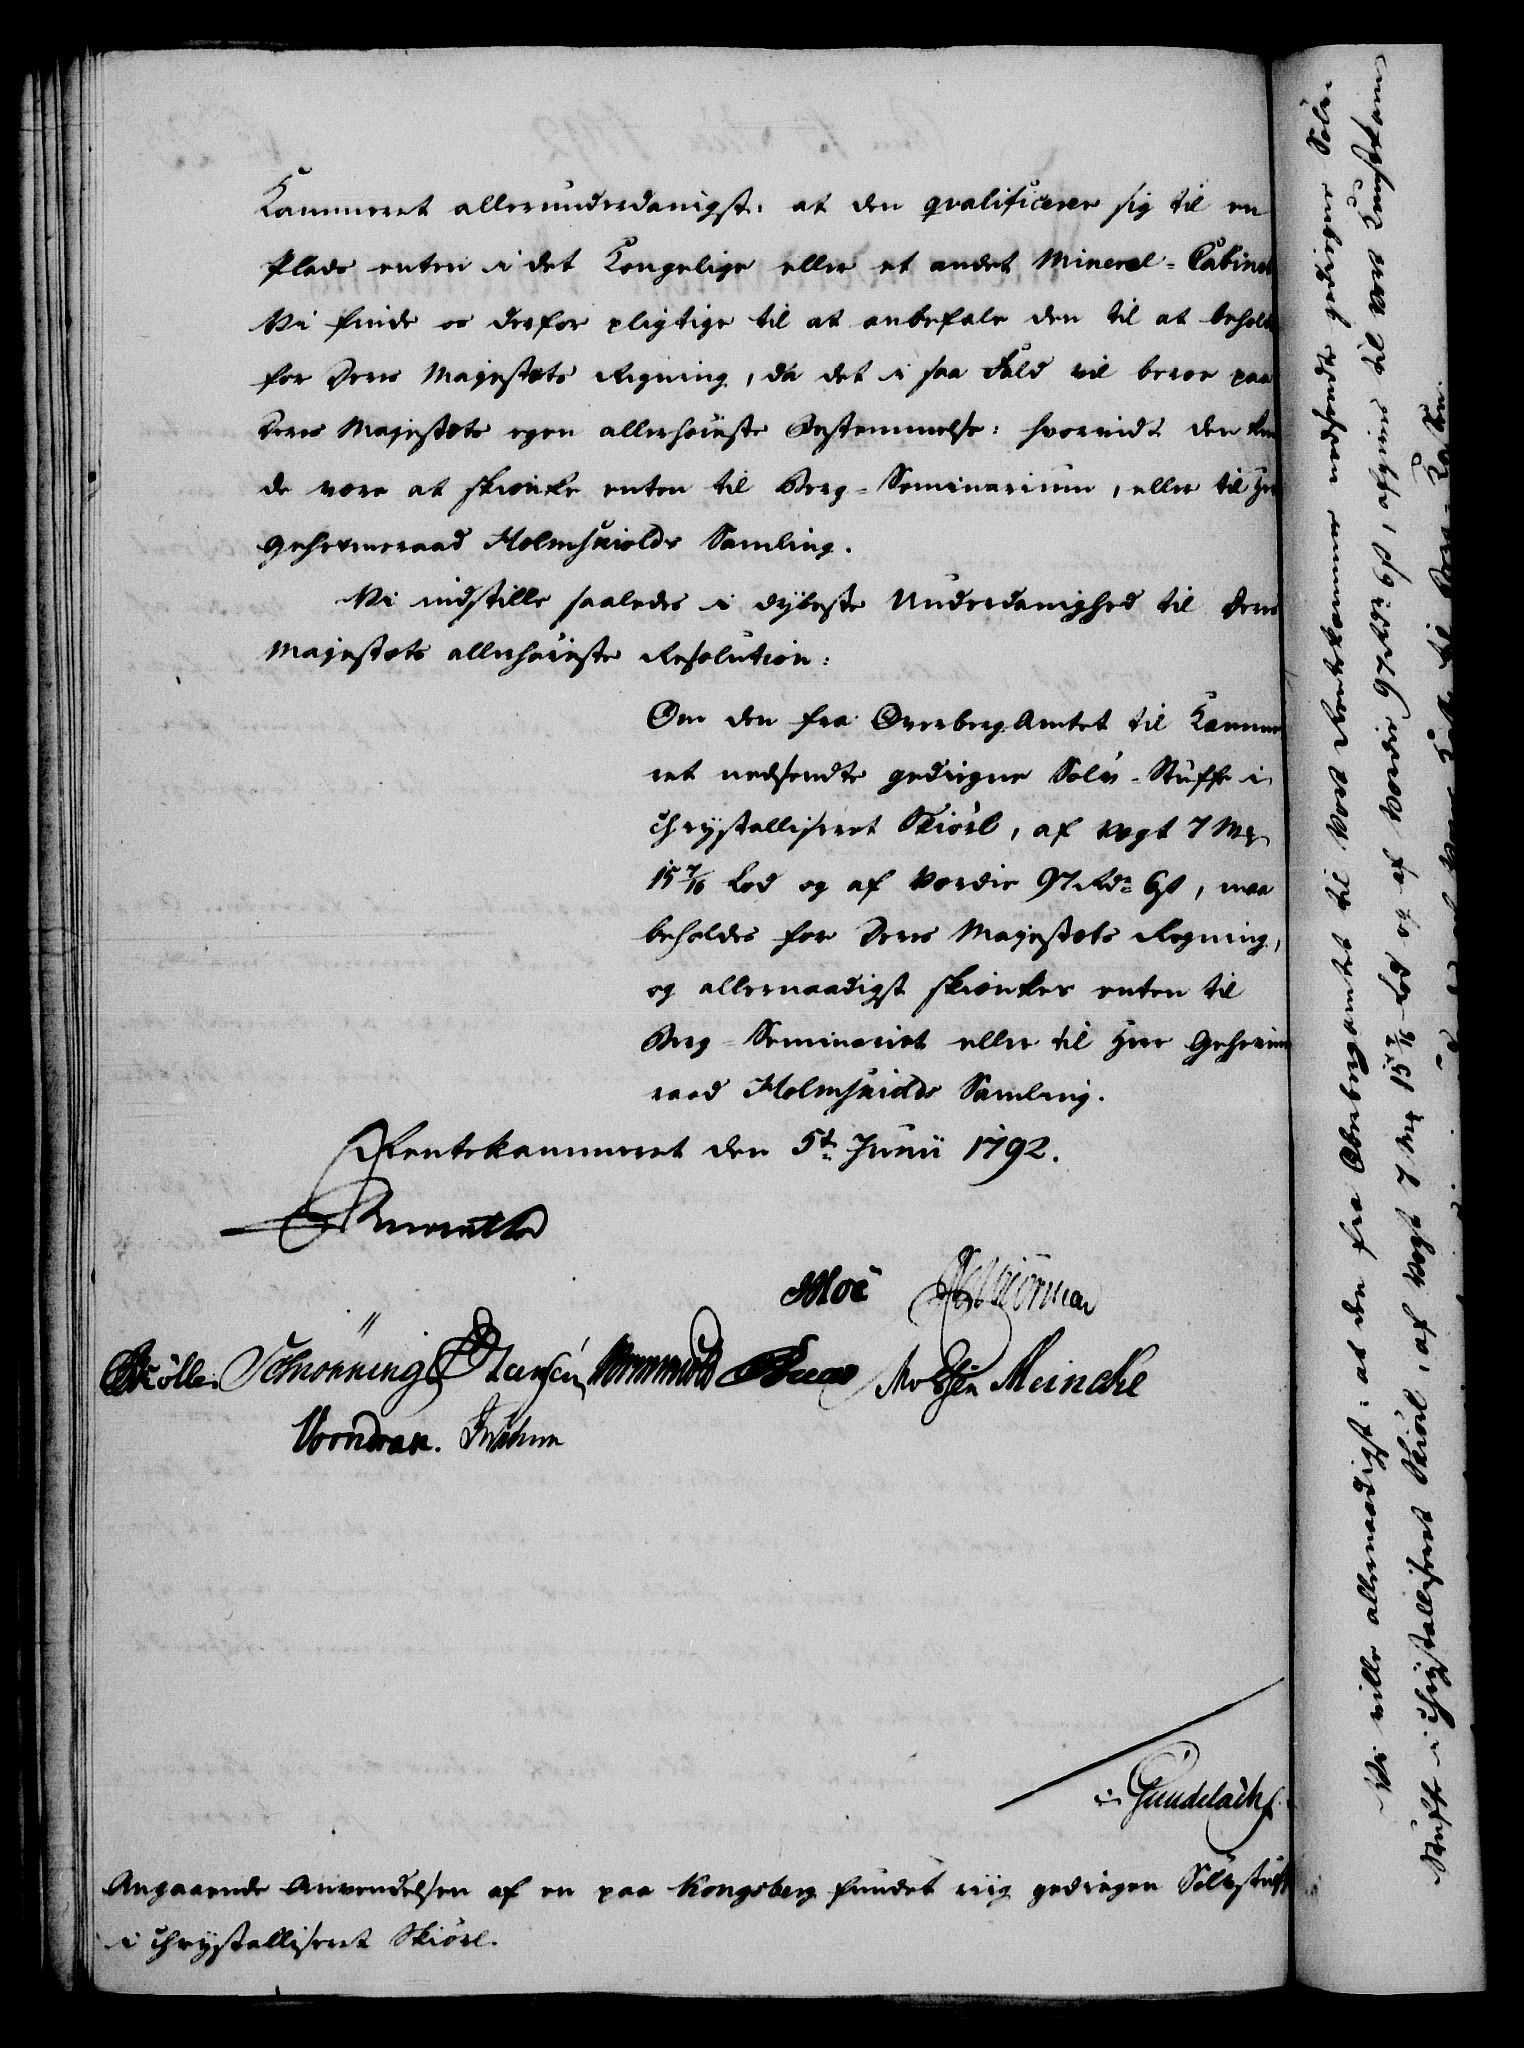 Kammeret allerunderdanigst: at den qvalificerer sig til en
Plads enten i det Kongelige eller et andet Mineral-Cabinet
Vi finde os derfor pligtige til at anbefale den til at behold
for Deres Majestæts Regning, da det i saa Fald vil beroe paa
Deres Majestæts egen allerhøieste Bestemmelse: hvorvidt den
de være at skiænke enten til Berg-Seminarium, eller til Her
Geheimeraad Holmskiolds Samling.
Vi indstille saaledes i dybeste Underdanighed til Deres
Majestæts allerhøieste Resolution:
Om den fra Overberg Amtet til Kamme
ret nedsendte gediegne Sølv-Stuffe i
chrystalliseret Skiörl, af Vegt 7 Mk
15 7/16 Lod og af Værdie 97 Rdr 6 ß, maa
beholdes for Deres Majestæts Regning,
og allernaadigst skiænkes enten til
Berg-Seminariet eller til Herr Geheime
raad Holmskiolds Samling.
Rentekammeret den 5t Junii 1792.
Moe
Schønning Hansen Meincke
Voondran.
Gundelach
Angaaende Anvendelsen af en paa Kongsberg funden riig gediegen Sølvstuff
i chrystalliseret Skiörl.
Vi ville allernaadigst: at den fra Oberbergamtet til Vort Rentekammer nedsendte gediegne Sølv
Stuffe i chrystalliseret Skiörl, af Vegt 7 Mk 15 7/16 Lod og af Værdie 97 Rdr 6 ß, afgives til Vort Kunstkam